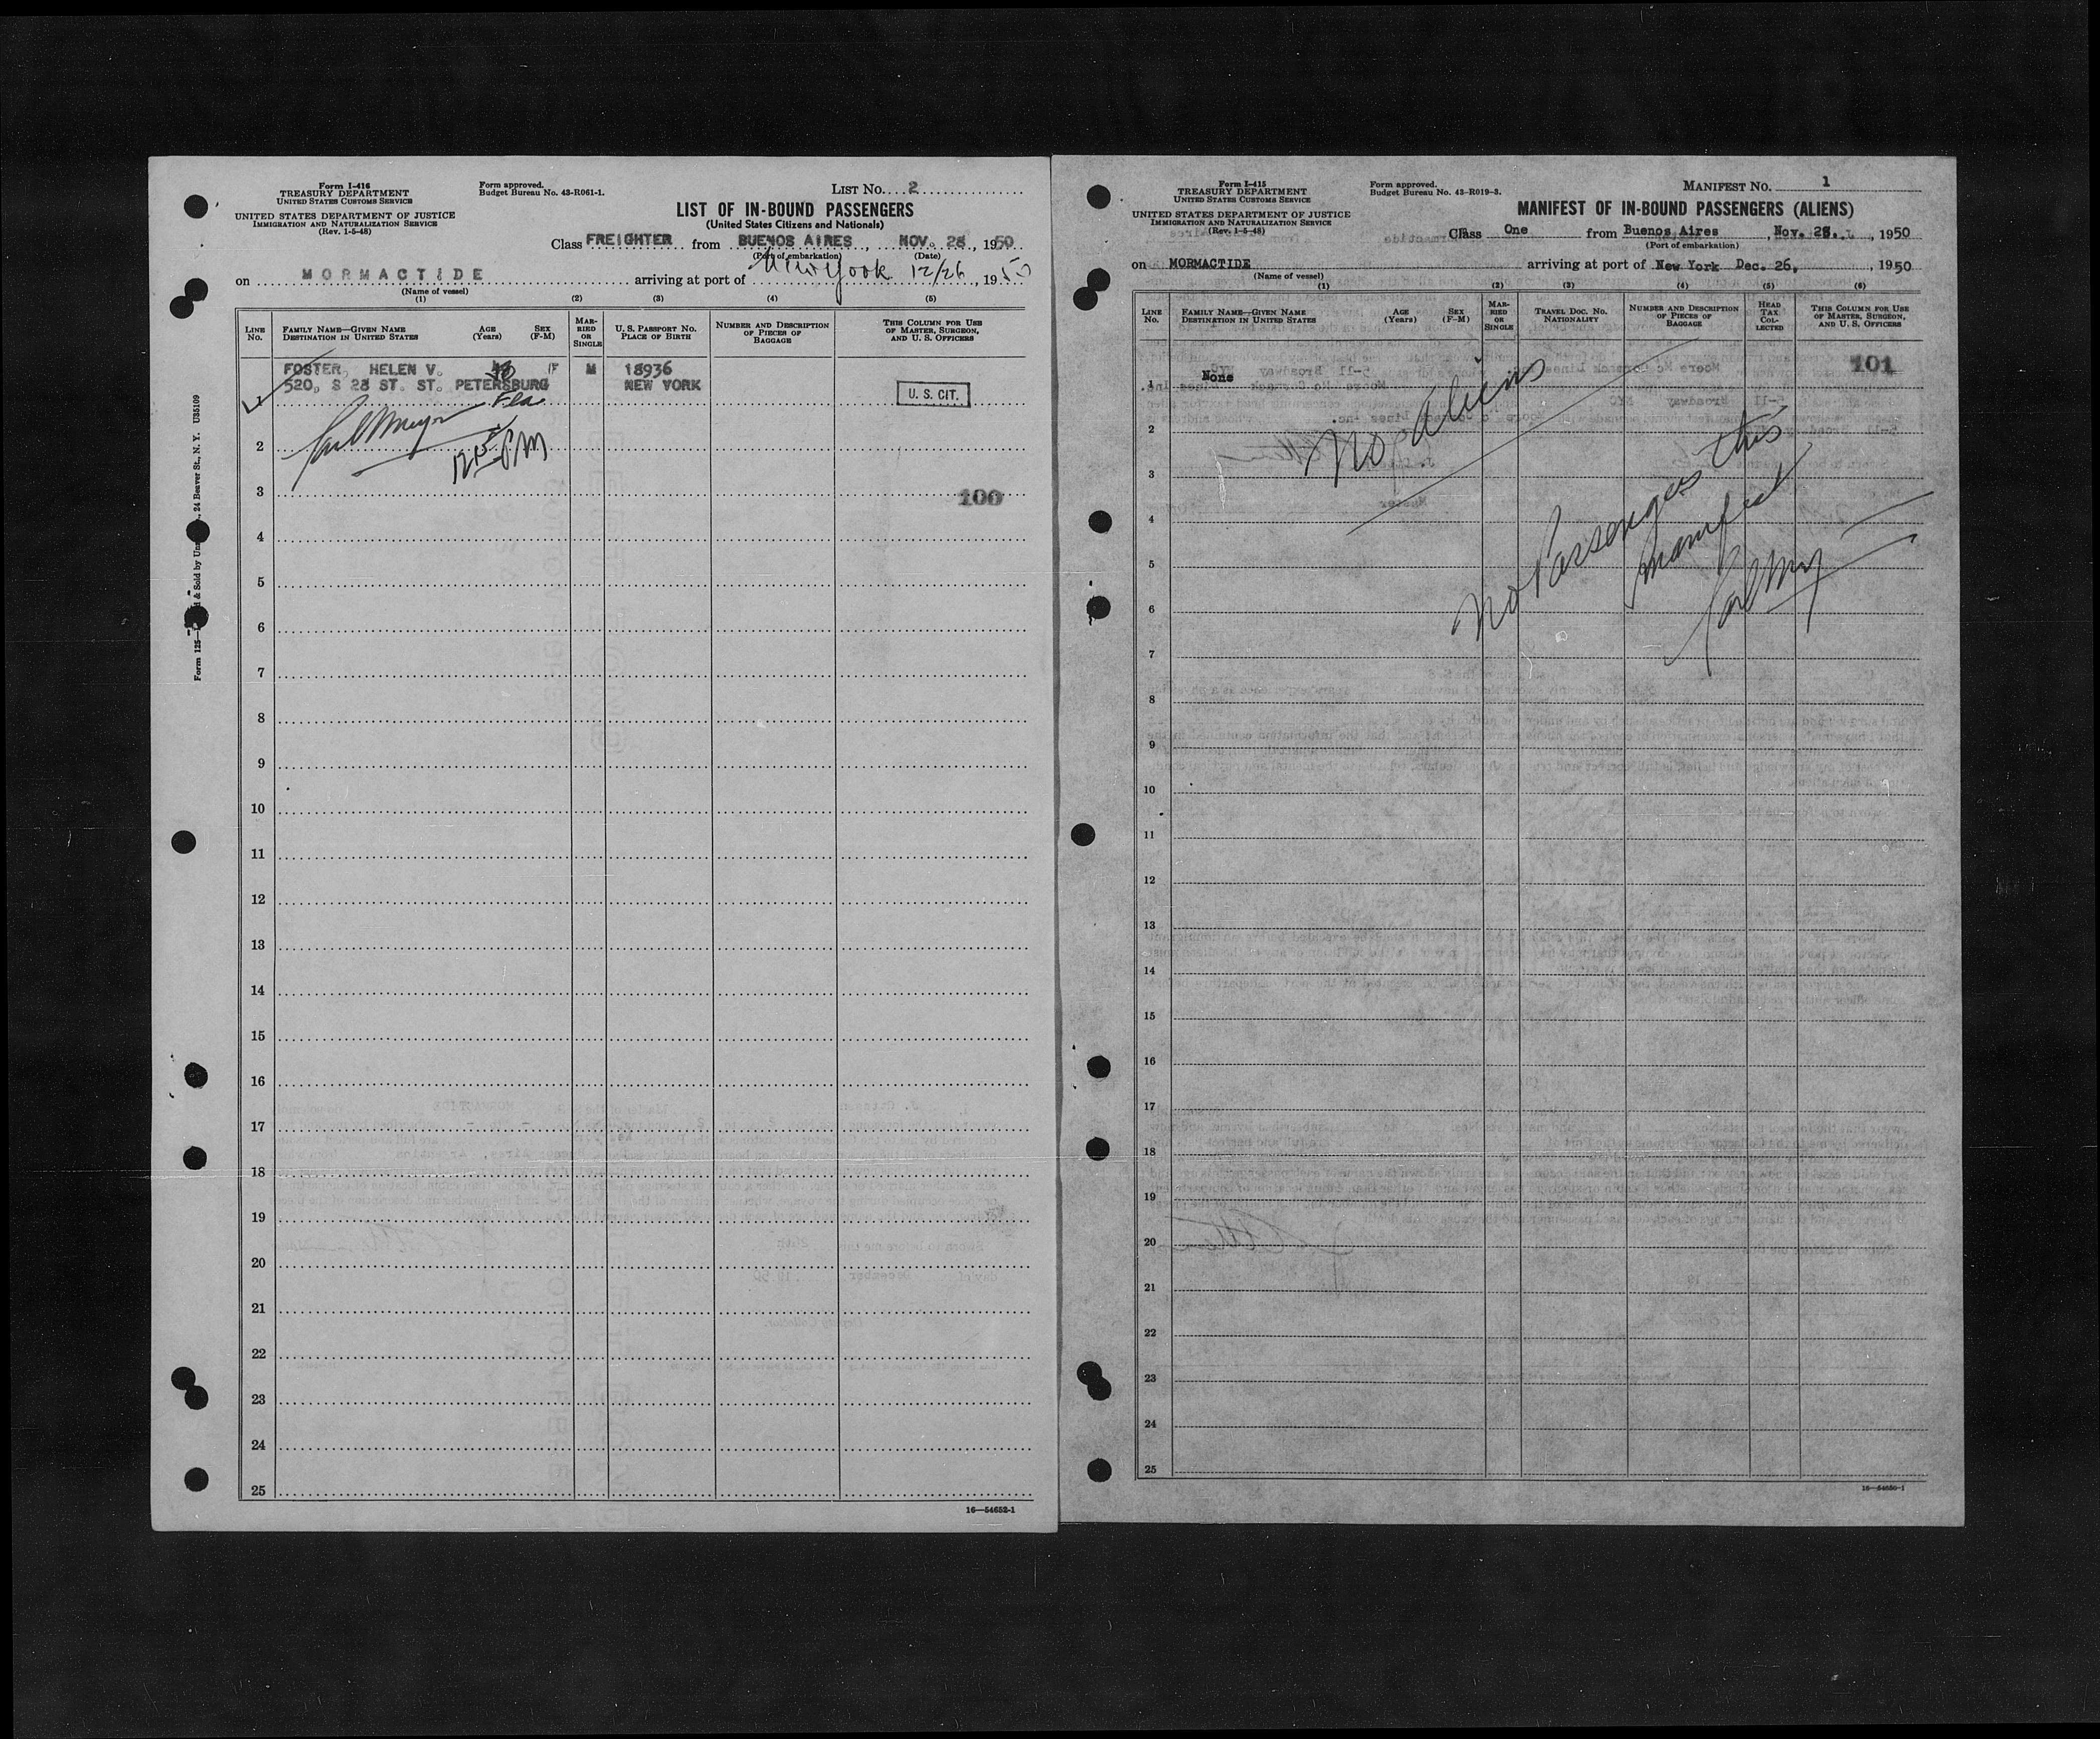 Form I-416
TREASURY DEPARTMENT
UNITED STATES CUSTOMS SERVICE
UNITED STATES DEPARTMENT OF JUSTICE
IMMIGRATION AND NATURALIZATION SERVICE
(Rev. 1-5-48)
Form approved.
Budget Bureau No. 43-R061-1.
LIST No. 2
LIST OF IN-BOUND PASSENGERS
(United States Citizens and Nationals)
Class FREIGHTER from BUENOS AIRES, NOV. 28, 1950
(Port of embarkation) (Date)
on MORMACTIDE arriving at port of New York 12/26, 1950
(Name of vessel)
(1) (2) (3) (4) (5)
LINE No.
FAMILY NAME—GIVEN NAME AGE (Years) SEX (F-M)
DESTINATION IN UNITED STATES
MARRIED OR SINGLE
U. S. PASSPORT NO.
PLACE OF BIRTH
NUMBER AND DESCRIPTION OF PIECES OF BAGGAGE
THIS COLUMN FOR USE OF MASTER, SURGEON, AND U. S. OFFICERS
FOSTER, HELEN V. F M 18936
520, S 28 ST. ST. PETERSBURG NEW YORK
Fla
U. S. CIT.
PM
100
2
3
4
5
6
7
8
9
10
11
12
13
14
15
16
17
18
19
20
21
22
23
24
25
16—54652-1
24 Beaver St., N. Y. U35109
Form I-415
TREASURY DEPARTMENT
UNITED STATES CUSTOMS SERVICE
UNITED STATES DEPARTMENT OF JUSTICE
IMMIGRATION AND NATURALIZATION SERVICE
(Rev. 1-5-48)
Form approved.
Budget Bureau No. 43-R019-3.
MANIFEST NO. 1
MANIFEST OF IN-BOUND PASSENGERS (ALIENS)
Class One from Buenos Aires, Nov. 28, 1950
(Port of embarkation)
on MORMACTIDE arriving at port of New York Dec. 26, 1950
(Name of vessel)
(1) (2) (3) (4) (5) (6)
LINE No.
FAMILY NAME—GIVEN NAME AGE (Years) SEX (F-M)
DESTINATION IN UNITED STATES
MARRIED OR SINGLE
TRAVEL DOC. NO.
NATIONALITY
NUMBER AND DESCRIPTION OF PIECES OF BAGGAGE
HEAD TAX COLLECTED
THIS COLUMN FOR USE OF MASTER, SURGEON, AND U. S. OFFICERS
101
None
No aliens
No Passengers this
manifest
1
2
3
4
5
6
7
8
9
10
11
12
13
14
15
16
17
18
19
20
21
22
23
24
25